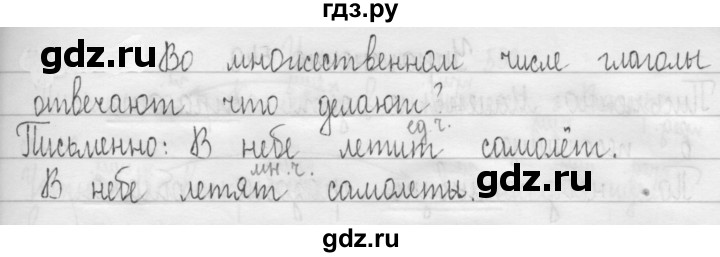 гдз.ру
gdz.ru Во множественном числе глаголы
отвечают что делают?
ед.ч.
Письменно: В небе летит самолёт.
мн.ч.
В небе летят самолеты. gdz.ru
gdz.ru